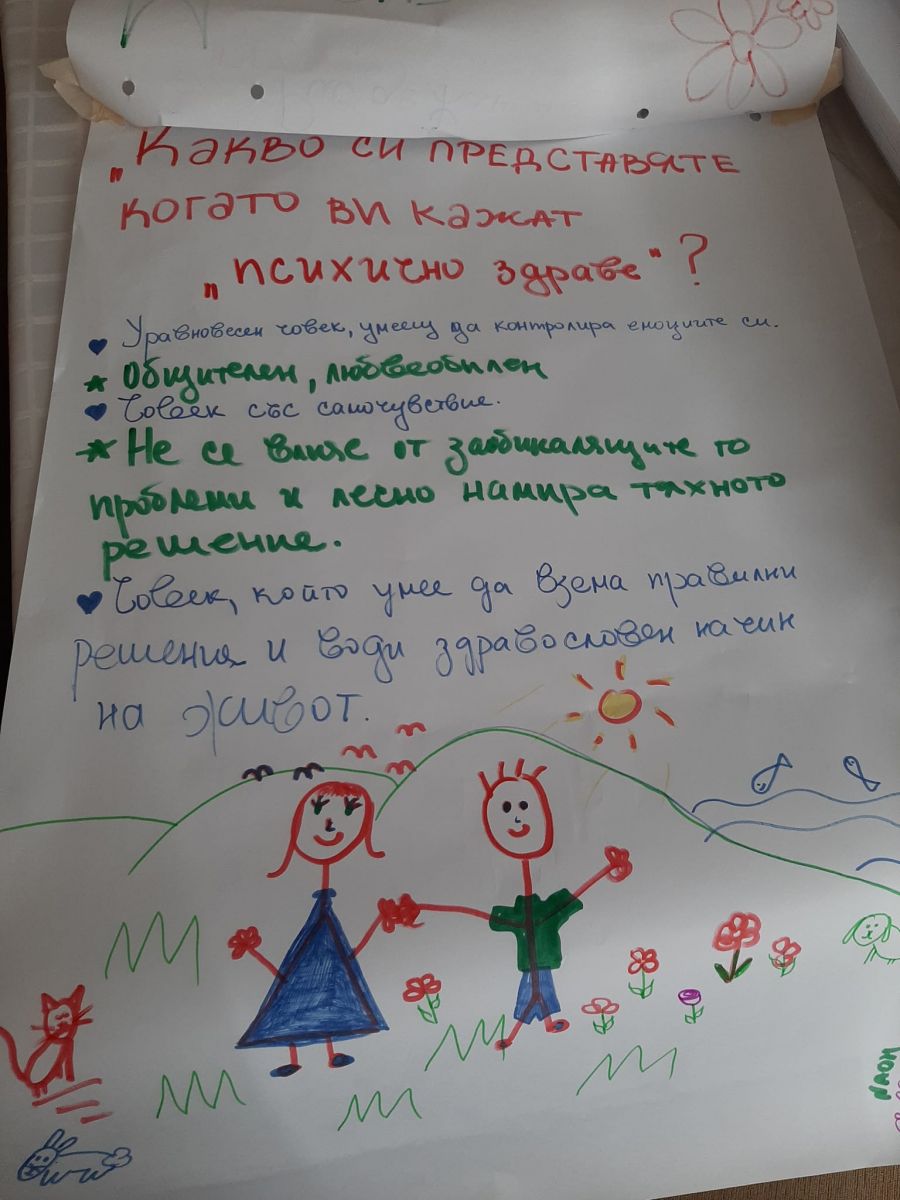 „Какво си представяте
когато ви кажат
„психично здраве“?
Уравновесен човек, умеещ да контролира емоциите си.
Общителен, любвеобилен
Човек със самочувствие.
Не се влияе от заобикалящите го
проблеми и лесно намира тяхното
решение.
Човек, който умее да взема правилни
решения и води здравословен начин
на живот.